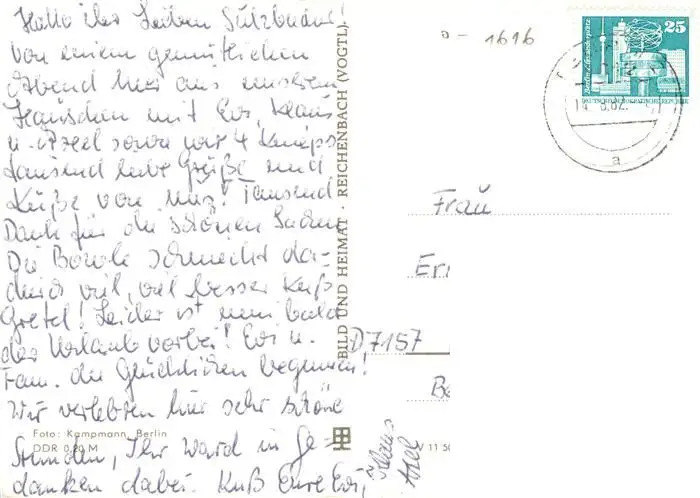 Hallo ihr Lieben Sulzbacher!
von einem gemütlichen
Abend hier aus unserem
Häuschen mit Evi, Klaus
u. Axel sowie wir 4 Knieps
tausend liebe Grüße und
Küße von uns! Tausend
Dank für die schönen Sachen
Die Bowle schmeckt da-
durch viel, viel besser Kuß
Gretel! Leider ist nun bald
der Urlaub vorbei! Evi u.
Fam. die Glücklichen beginnen!
Wir verlebten hier sehr schöne
Stunden, Ihr ward in Ge-
danken dabei. Kuß Eure Evi,
Klaus
Axel
Foto: Kampmann, Berlin
DDR 0,20 M
BILD UND HEIMAT · REICHENBACH (VOGTL)
V 11 50
1616
25
DEUTSCHE DEMOKRATISCHE REPUBLIK
a
Frau
Eri
D7157